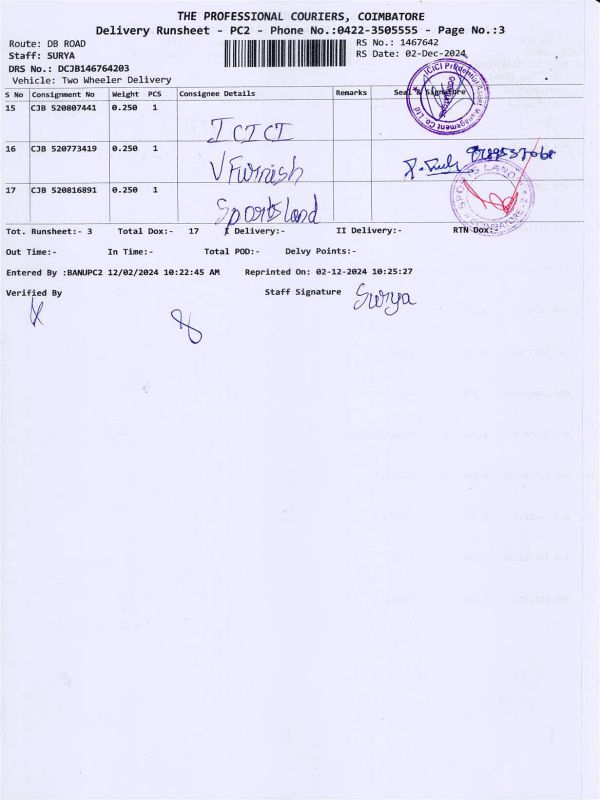 THE PROFESSIONAL COURIERS, COIMBATORE
Delivery Runsheet - PC2 - Phone No.:0422-3505555 - Page No.:3
Route: DB ROAD RS No.: 1467642
Staff: SURYA RS Date: 02-Dec-2024
DRS No.: DCJB146764203
Vehicle: Two Wheeler Delivery
S No Consignment No Weight PCS Consignee Details Remarks Seal & Signature
ICICI Prudential Asset Management Co Ltd
15 CJB 520807441 0.250 1
ICICI
16 CJB 520773419 0.250 1
V Furnish
17 CJB 520816891 0.250 1
SPORTS LAND
Sportsland
Tot. Runsheet:- 3 Total Dox:- 17 I Delivery:- II Delivery:- RTN Dox:-
Out Time:- In Time:- Total POD:- Delvy Points:-
Entered By :BANUPC2 12/02/2024 10:22:45 AM Reprinted On: 02-12-2024 10:25:27
Verified By Staff Signature Surya